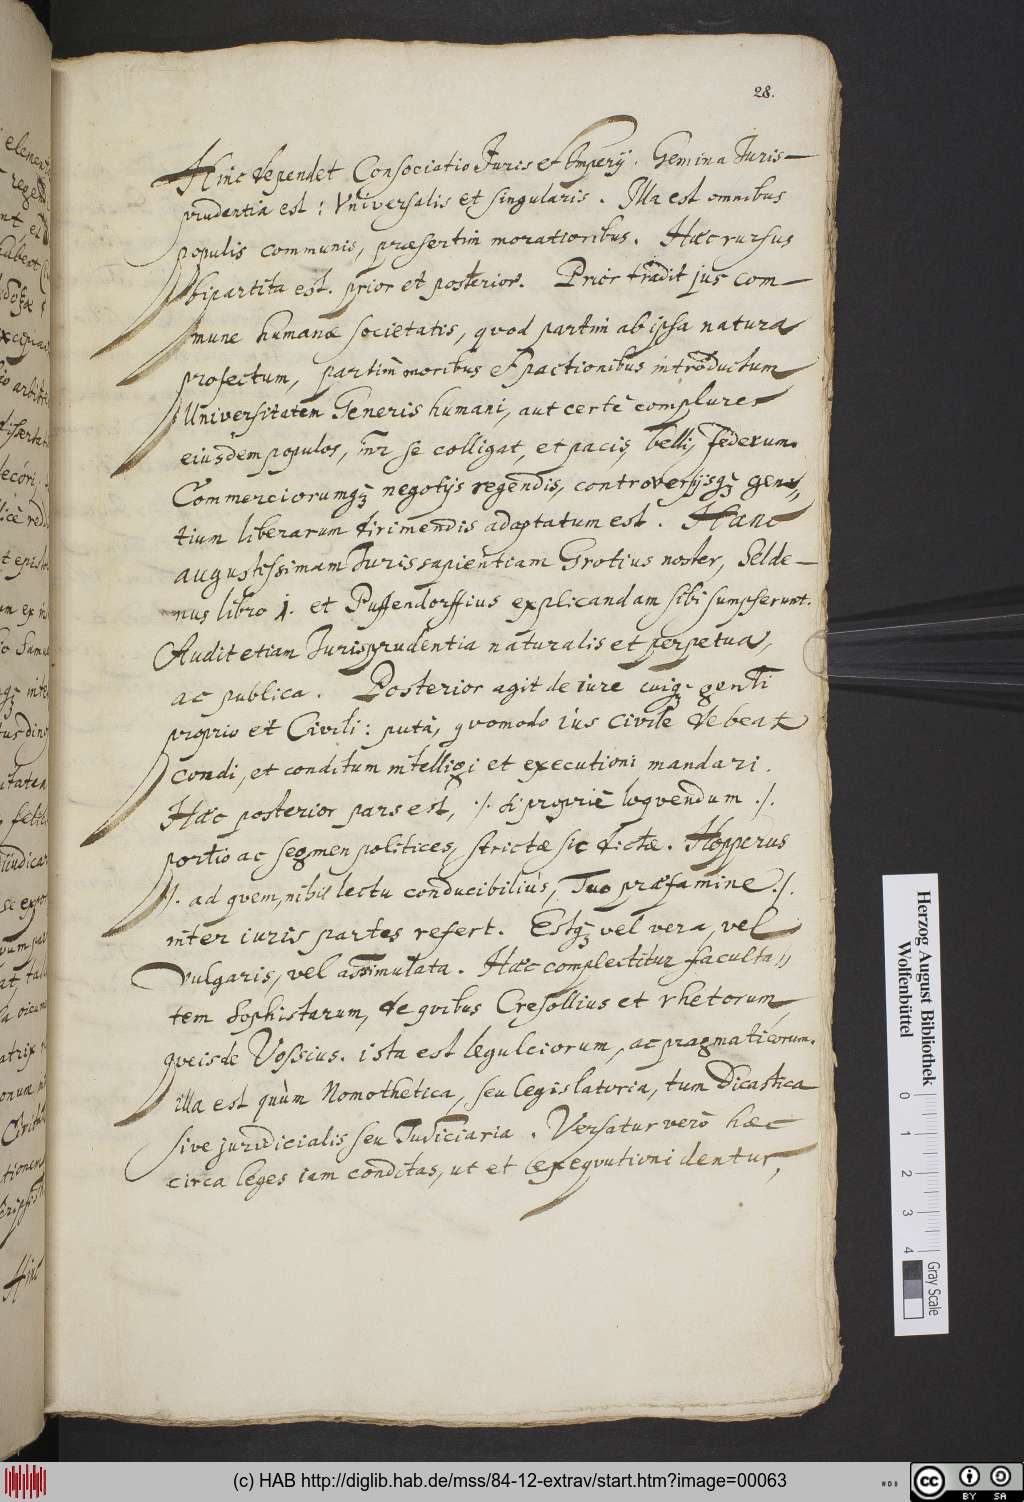 28.
Hinc dependet Consociatio Juris et Imperij. Gemina Juris-
prudentia est: Vniversalis et singularis. Illa est omnibus
populis communis, præsertim moratioribus. Hæc rursus
bipartita est. prior et posterior. Prior tradit jus com-
mune humanæ societatis, quod partim ab ipsa natura
profectum, partim moribus et pactionibus introductum
Universitatem Generis humani, aut certè complures
eiusdem populos, inter se colligat, et pacis, belli, fœderum.
Commerciorumqꝫ negotijs regendis, controversijsqꝫ gen-
tium liberarum dirimendis adaptatum est. Hanc
augustissimam Jurissapientiam Grotius noster, Selde-
nus libro 1. et Puffendorffius explicandam sibi sumpserunt.
Audit etiam Jurisprudentia naturalis et perpetua,
ac publica. Posterior agit de iure cuiqꝫ genti
proprio et Civili: putà, quomodo ius civile debeat
condi, et conditum intelligi et executioni mandari.
Hæc posterior pars est, ./. si propriè loquendum ./.
portio ac segmen politices, strictæ sic dictæ. Hopperus
./. ad quem, nihil lectu conducibilius, Tuo præfamine ./.
inter iuris partes refert. Estqꝫ vel vera, vel
vulgaris, vel assimulata. Hæc complectitur faculta-
tem Sophistarum, de quibus Cresollius et rhetorum,
queis de Vossius. ista est leguleiorum, ac pragmaticorum.
illa est quùm Nomothetica, seu legislatoria, tum Dicastica
sive juridicialis seu Judiciaria. Versatur verò hæc
circa leges iam conditas, ut et exequutioni dentur,
Herzog August Bibliothek
Wolfenbüttel
0 1 2 3 4
Gray Scale
(c) HAB http://diglib.hab.de/mss/84-12-extrav/start.htm?image=00063